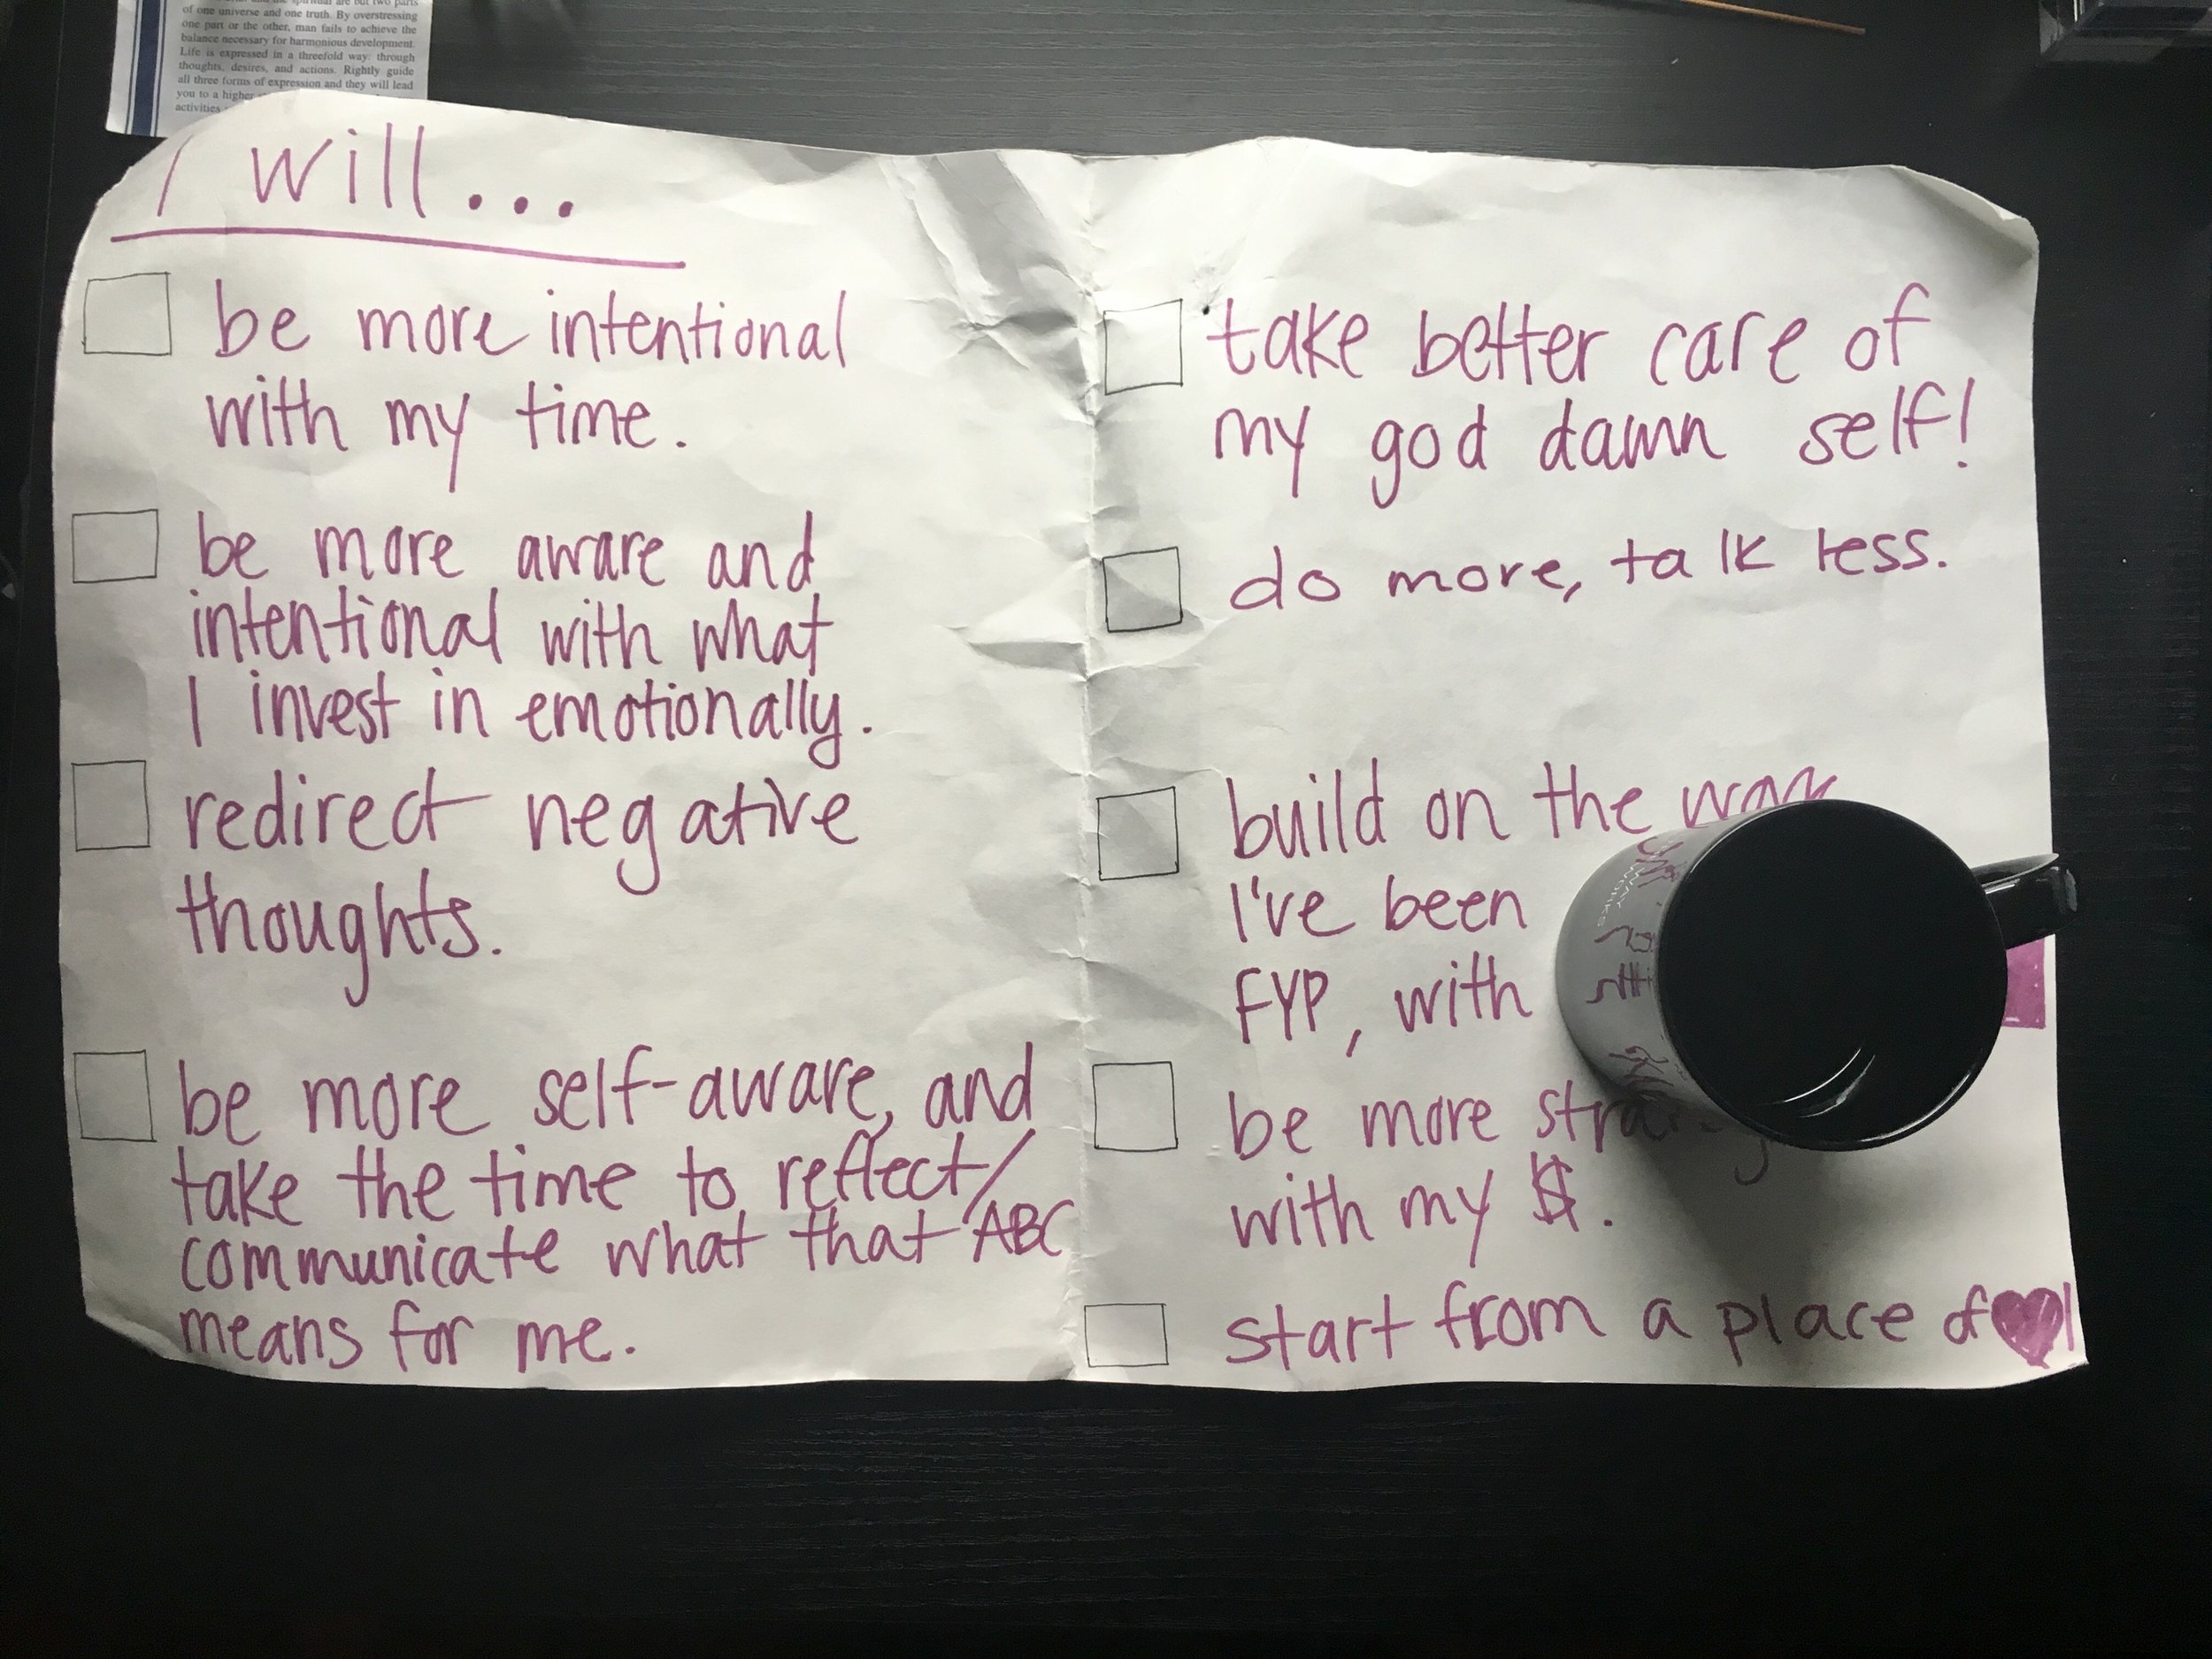 of one universe and one truth. By overstressing
one part or the other, man fails to achieve the
balance necessary for harmonious development.
Life is expressed in a threefold way: through
thoughts, desires, and actions. Rightly guide
all three forms of expression and they will lead
you to a higher
activities
I will...
be more intentional
with my time.
be more aware and
intentional with what
I invest in emotionally.
redirect negative
thoughts.
be more self-aware, and
take the time to reflect/
communicate what that ABC
means for me.
take better care of
my god damn self!
do more, talk less.
build on the work
I've been
FYP, with
be more
with my $.
start from a place of ♥!